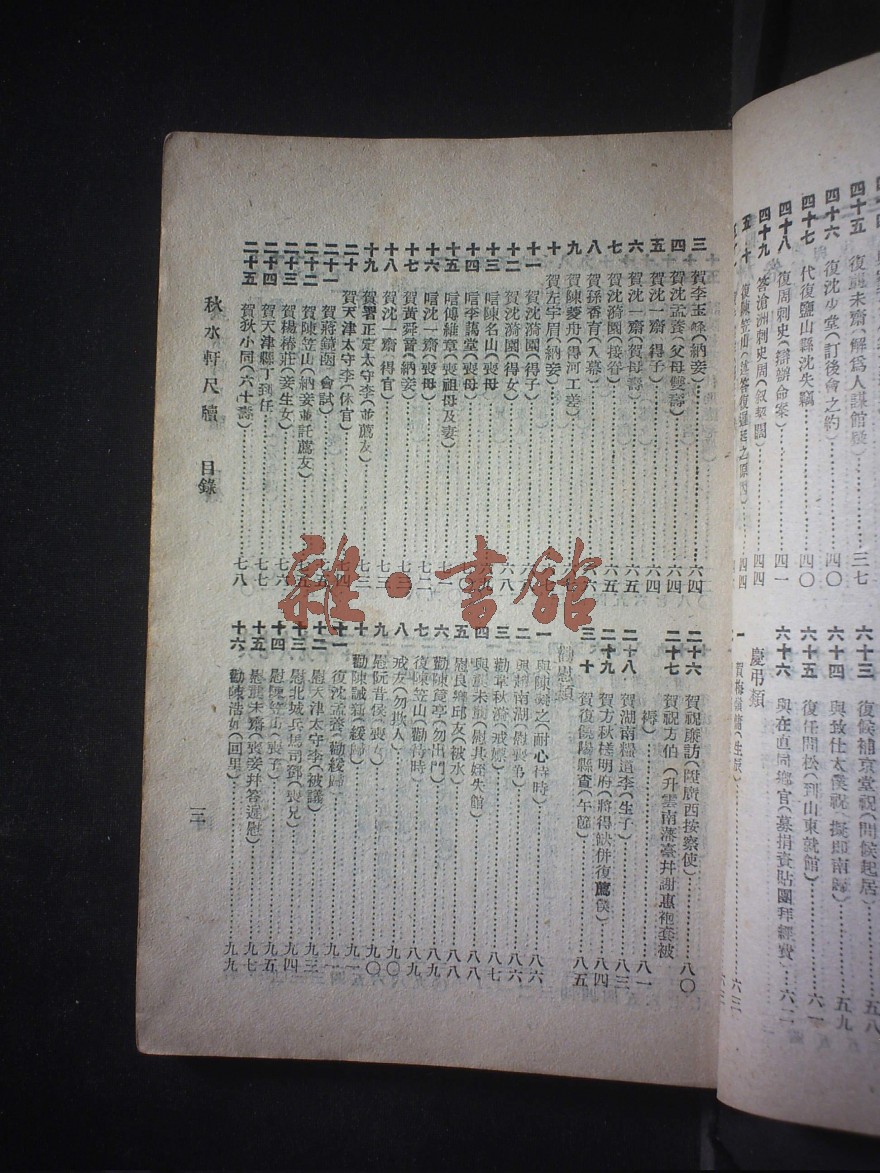 四十五 復龔未齋（解爲人謀館疑）……三七
四十六 復沈少堂（訂後會之約）……四〇
四十七 代復鹽山縣沈失竊……四〇
四十八 復周刺史（辯辦命案）……四一
四十九 答滄洲刺史周（叙契闊）……四四
五十 復陳笠山……四四
六十三 復候補京堂祝（問候起居）……五八
六十四 與致仕太僕祝（擬卽南歸）……五九
六十五 復任問松（到山東就館）……六一
六十六 與在直同鄉官（募捐資貼團拜經費）……六二
慶弔類
三 賀李玉峰（納妾）……六四
四 賀沈孟養（父母雙壽）……六四
五 賀沈一齋（得子）……六四
六 賀沈一齋（賀母壽）……六五
七 賀沈漪園（接眷）……六五
八 賀孫香育（入幕）……六六
九 賀陳菱舟（得河工差）……六七
十 賀左宇周（納妾）
十一 賀沈漪園（得子）
十二 賀沈漪園（得女）……六八
十三 唁陳名山（喪母）……六九
十四 唁李藹堂（喪母）
十五 唁傅維章（喪祖母及妻）
十六 唁沈一齋（喪母）……七二
十七 賀黃舜音（納妾）……七三
十八 賀沈一齋（得官）……七三
十九 賀署正定太守李（並薦友）……七三
二十 賀天津太守李（休官）……七四
二十一 賀蔣鏡函（會試）……七五
二十二 賀陳笠山（納妾並託薦友）
二十三 賀楊椿莊（妾生女）
二十四 賀天津縣丁到任……七七
二十五 賀狄小同（六十壽）……七八
二十六 賀祝廉訪（陞廣西按察使）……八〇
二十七 賀祝方伯（升雲南藩臺并謝惠袍套被
褥）……八一
二十八 賀湖南糧道李（生子）……八三
二十九 賀方秋槎明府（將得缺併復薦僕）……八四
三十 賀復饒陽縣查（午節）……八五
勸慰類
一 ……八六
二 ……八六
三 勸韋秋漪（戒嫖）……八七
四 ……八八
五 慰良鄉邱友（被水）……八八
六 勸陳鏡亭（勿出門）……八九
七 復陳笠山（勸待時）……八九
八 戒友（勿欺人）……九〇
九 慰阮昔侯（喪女）……九〇
十 勸陳誠齋（緩歸）……九一
十一 復沈孟養（勸緩歸）……九一
十二 慰天津太守李（被議）……九三
十三 慰北城兵馬司鄧（喪兄）……九四
十四 慰陳笠山（喪子）……九五
十五 慰龔未齋（喪妾并答遲慰）……九七
十六 勸陳浩如（回里）……九九
秋水軒尺牘 目錄
三
雜·書館